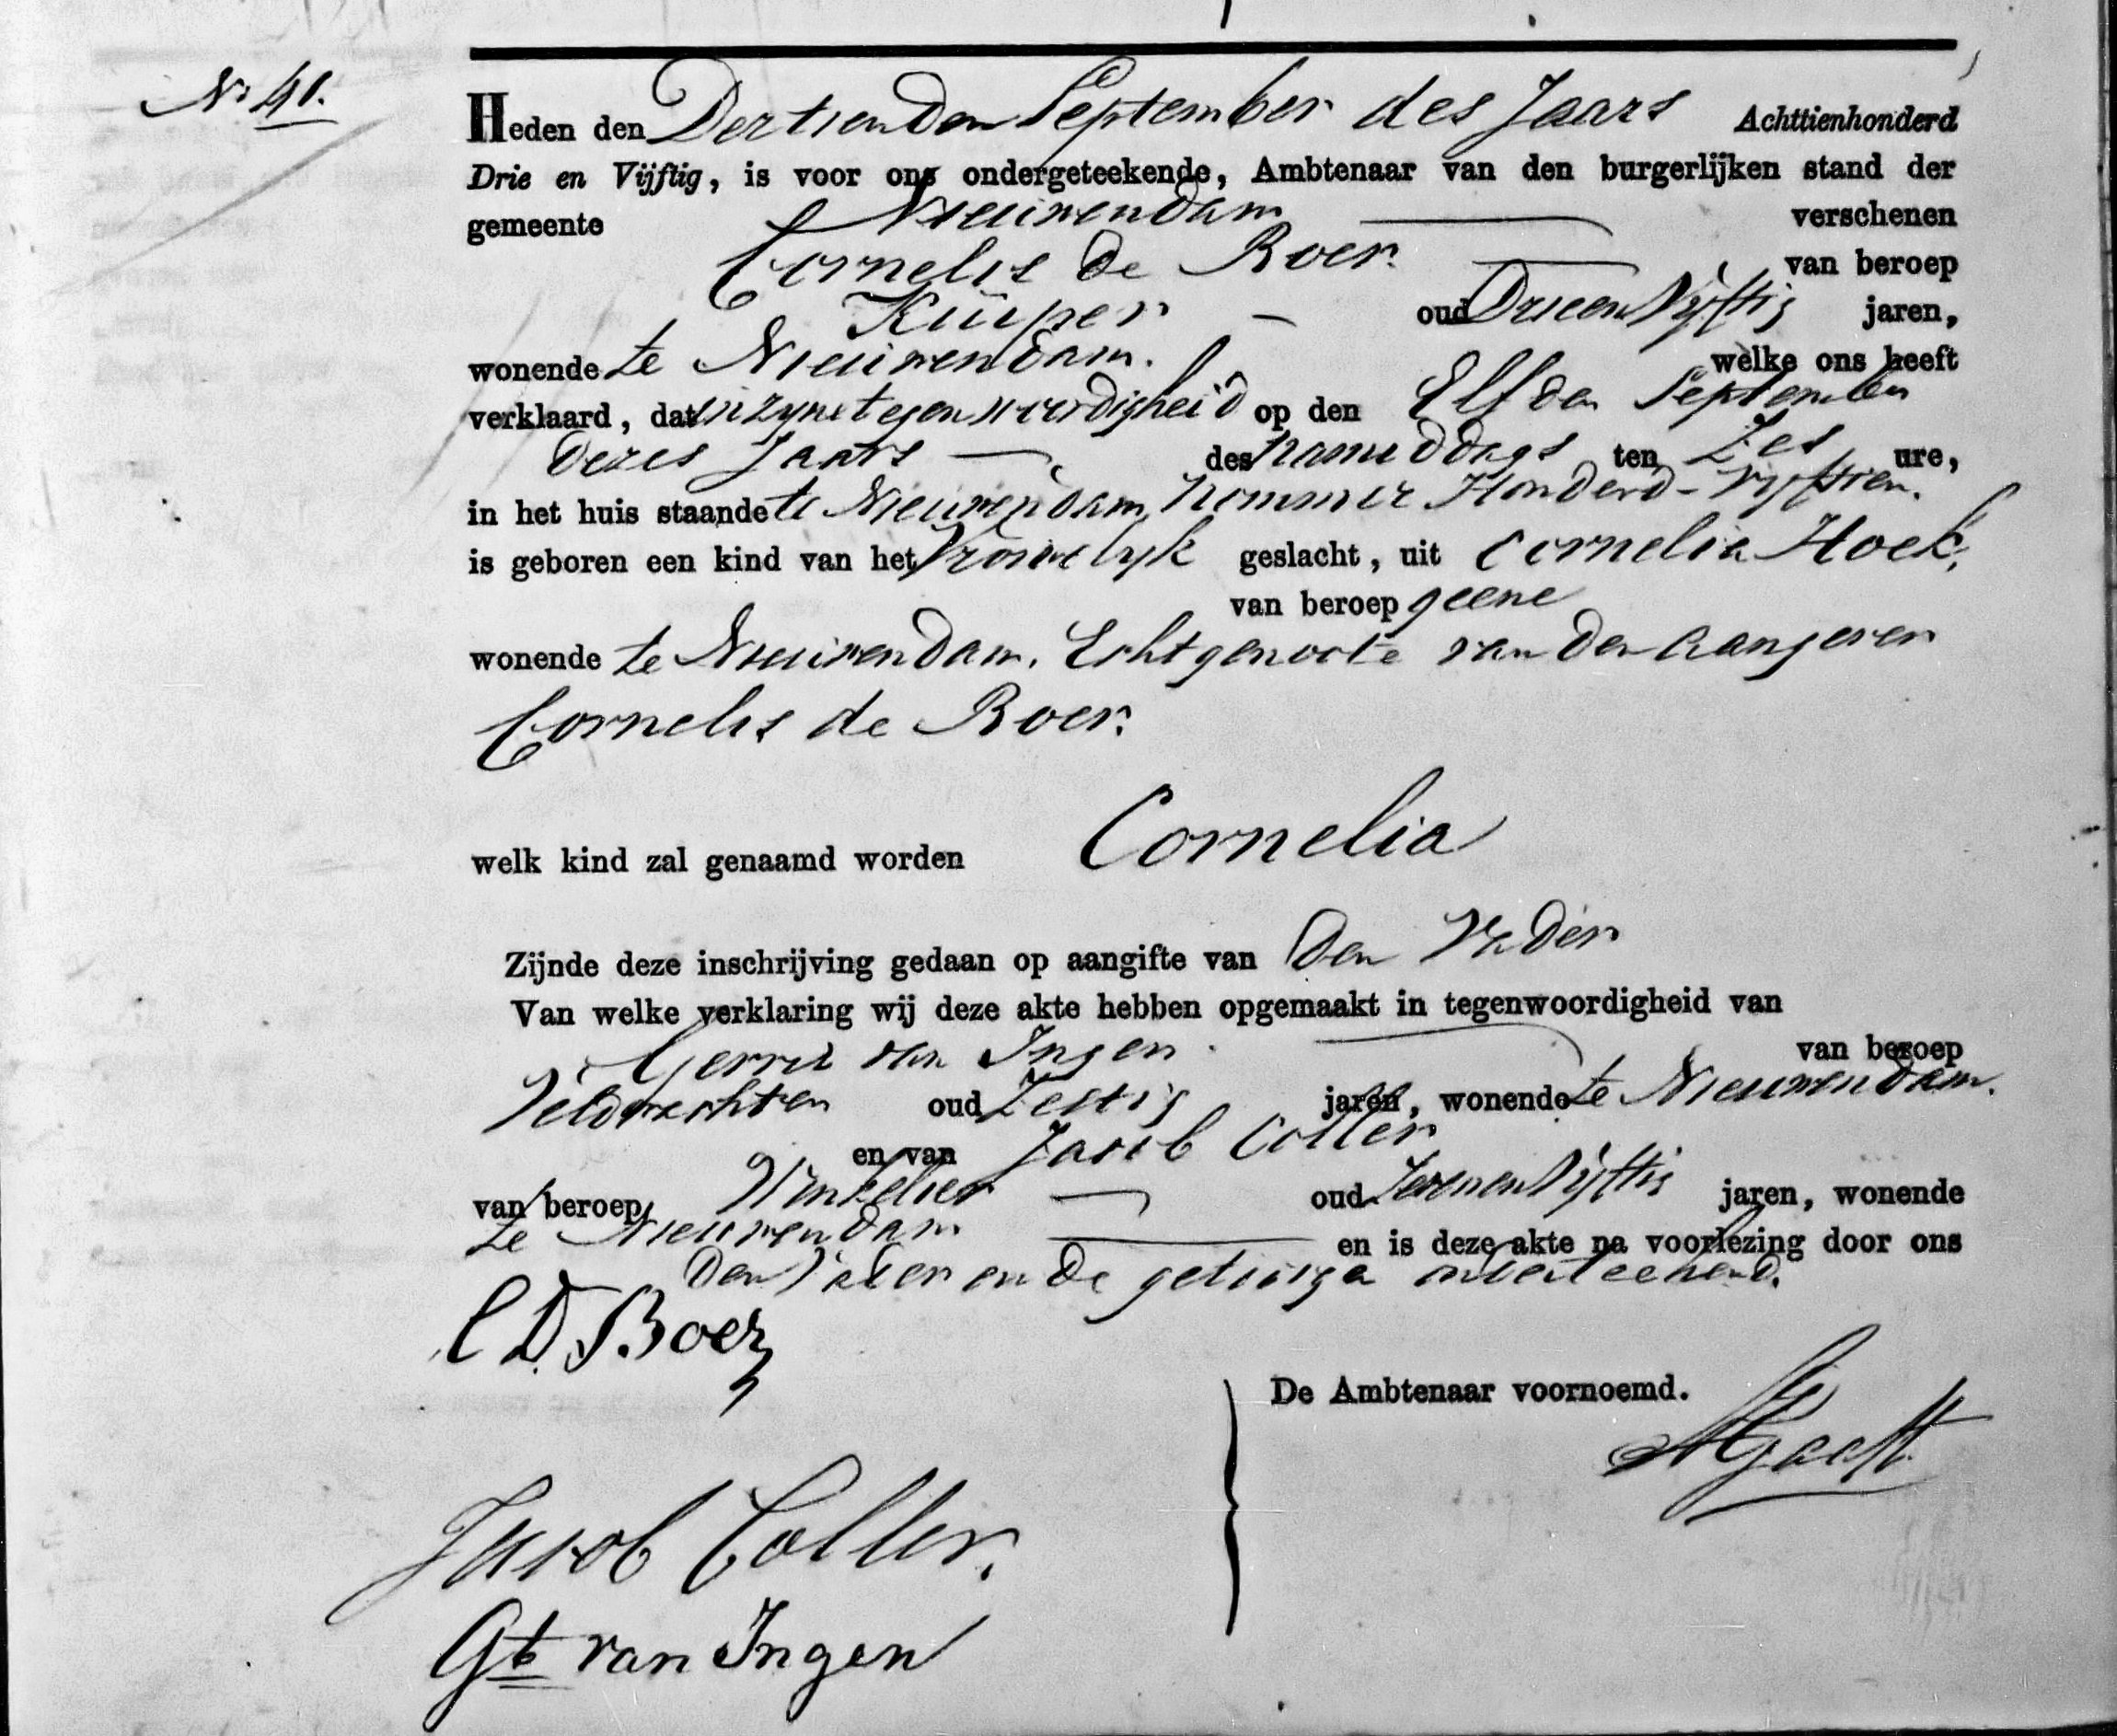 No 41.
Heden den Dertienden September des Jaars Achttienhonderd
Drie en Vijftig, is voor ons ondergeteekende, Ambtenaar van den burgerlijken stand der
gemeente Nieuwendam verschenen
Cornelis de Boer van beroep
Kuiper oud Drieen Vijftig jaren,
wonende te Nieuwendam. welke ons heeft
verklaard, dat in zyne tegenwoordigheid op den Elfden September
dezes Jaars des namiddags ten Zes ure,
in het huis staande te Nieuwendam, Nommer Honderd-Vyftien.
is geboren een kind van het Vrouwelyk geslacht, uit Cornelia Hoek,
van beroep geene
wonende te Nieuwendam, Echtgenoote van den aangever
Cornelis de Boer.
welk kind zal genaamd worden Cornelia
Zijnde deze inschrijving gedaan op aangifte van Den Vader
Van welke verklaring wij deze akte hebben opgemaakt in tegenwoordigheid van
Gerrit van Ingen van beroep
Veldwachter oud Zestig jaren, wonende te Nieuwendam.
en van Jacob Coller
van beroep Winkelier oud Zevenen Vijftig jaren, wonende
te Nieuwendam en is deze akte na voorlezing door ons
Den Vader en de getuige onderteekend.
C D. Boer
De Ambtenaar voornoemd.
Jacob Coller.
Gt van Ingen